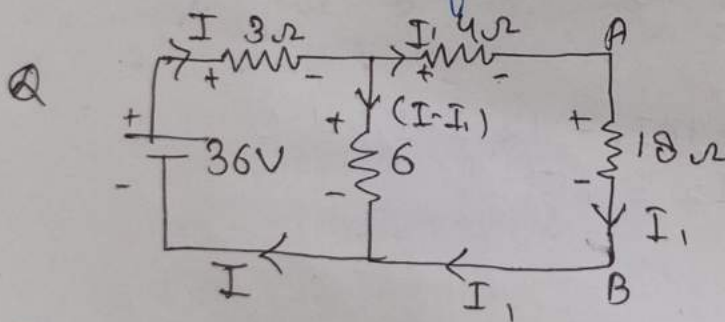 I 3Ω I₁ 4Ω A
Q + - + -
+ 36V - + (I-I₁) 6 - + 18Ω -
I₁
I I₁ B